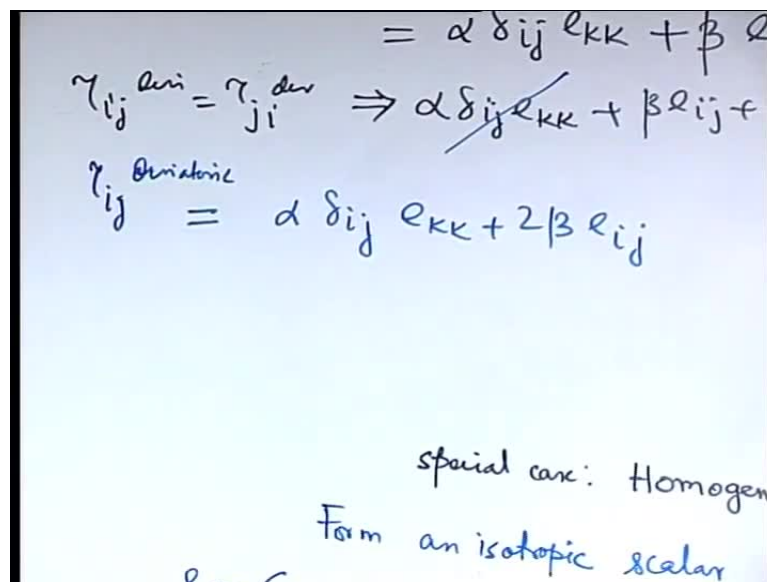 = α δij ekk + β e
τij devi = τji dev ⇒ α δij ekk + β eij +
τij Deviatoric = α δij ekk + 2β eij
special case: Homogen
Form an isotopic scalar